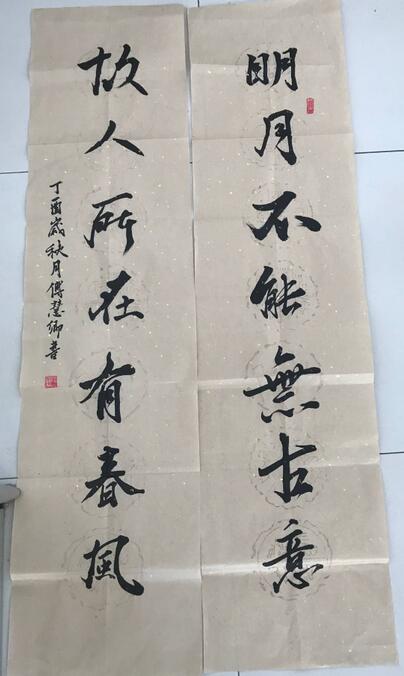 明月不能無古意
故人所在有春風
丁酉歲秋月傅慧卿書